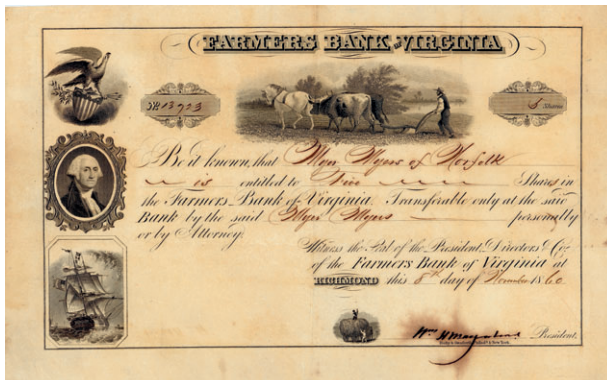 FARMERS BANK OF VIRGINIA
No 13923
5 Shares
Be it known, that Myer Myers of Norfolk
is entitled to Five Shares in
the Farmers Bank of Virginia Transferable only at the said
Bank by the said Myer Myers personally
or by Attorney.
Witness the Seal of the President, Directors & Co.
of the Farmers Bank of Virginia at
RICHMOND this 8th day of November 1860
Wm H Macfarland President.